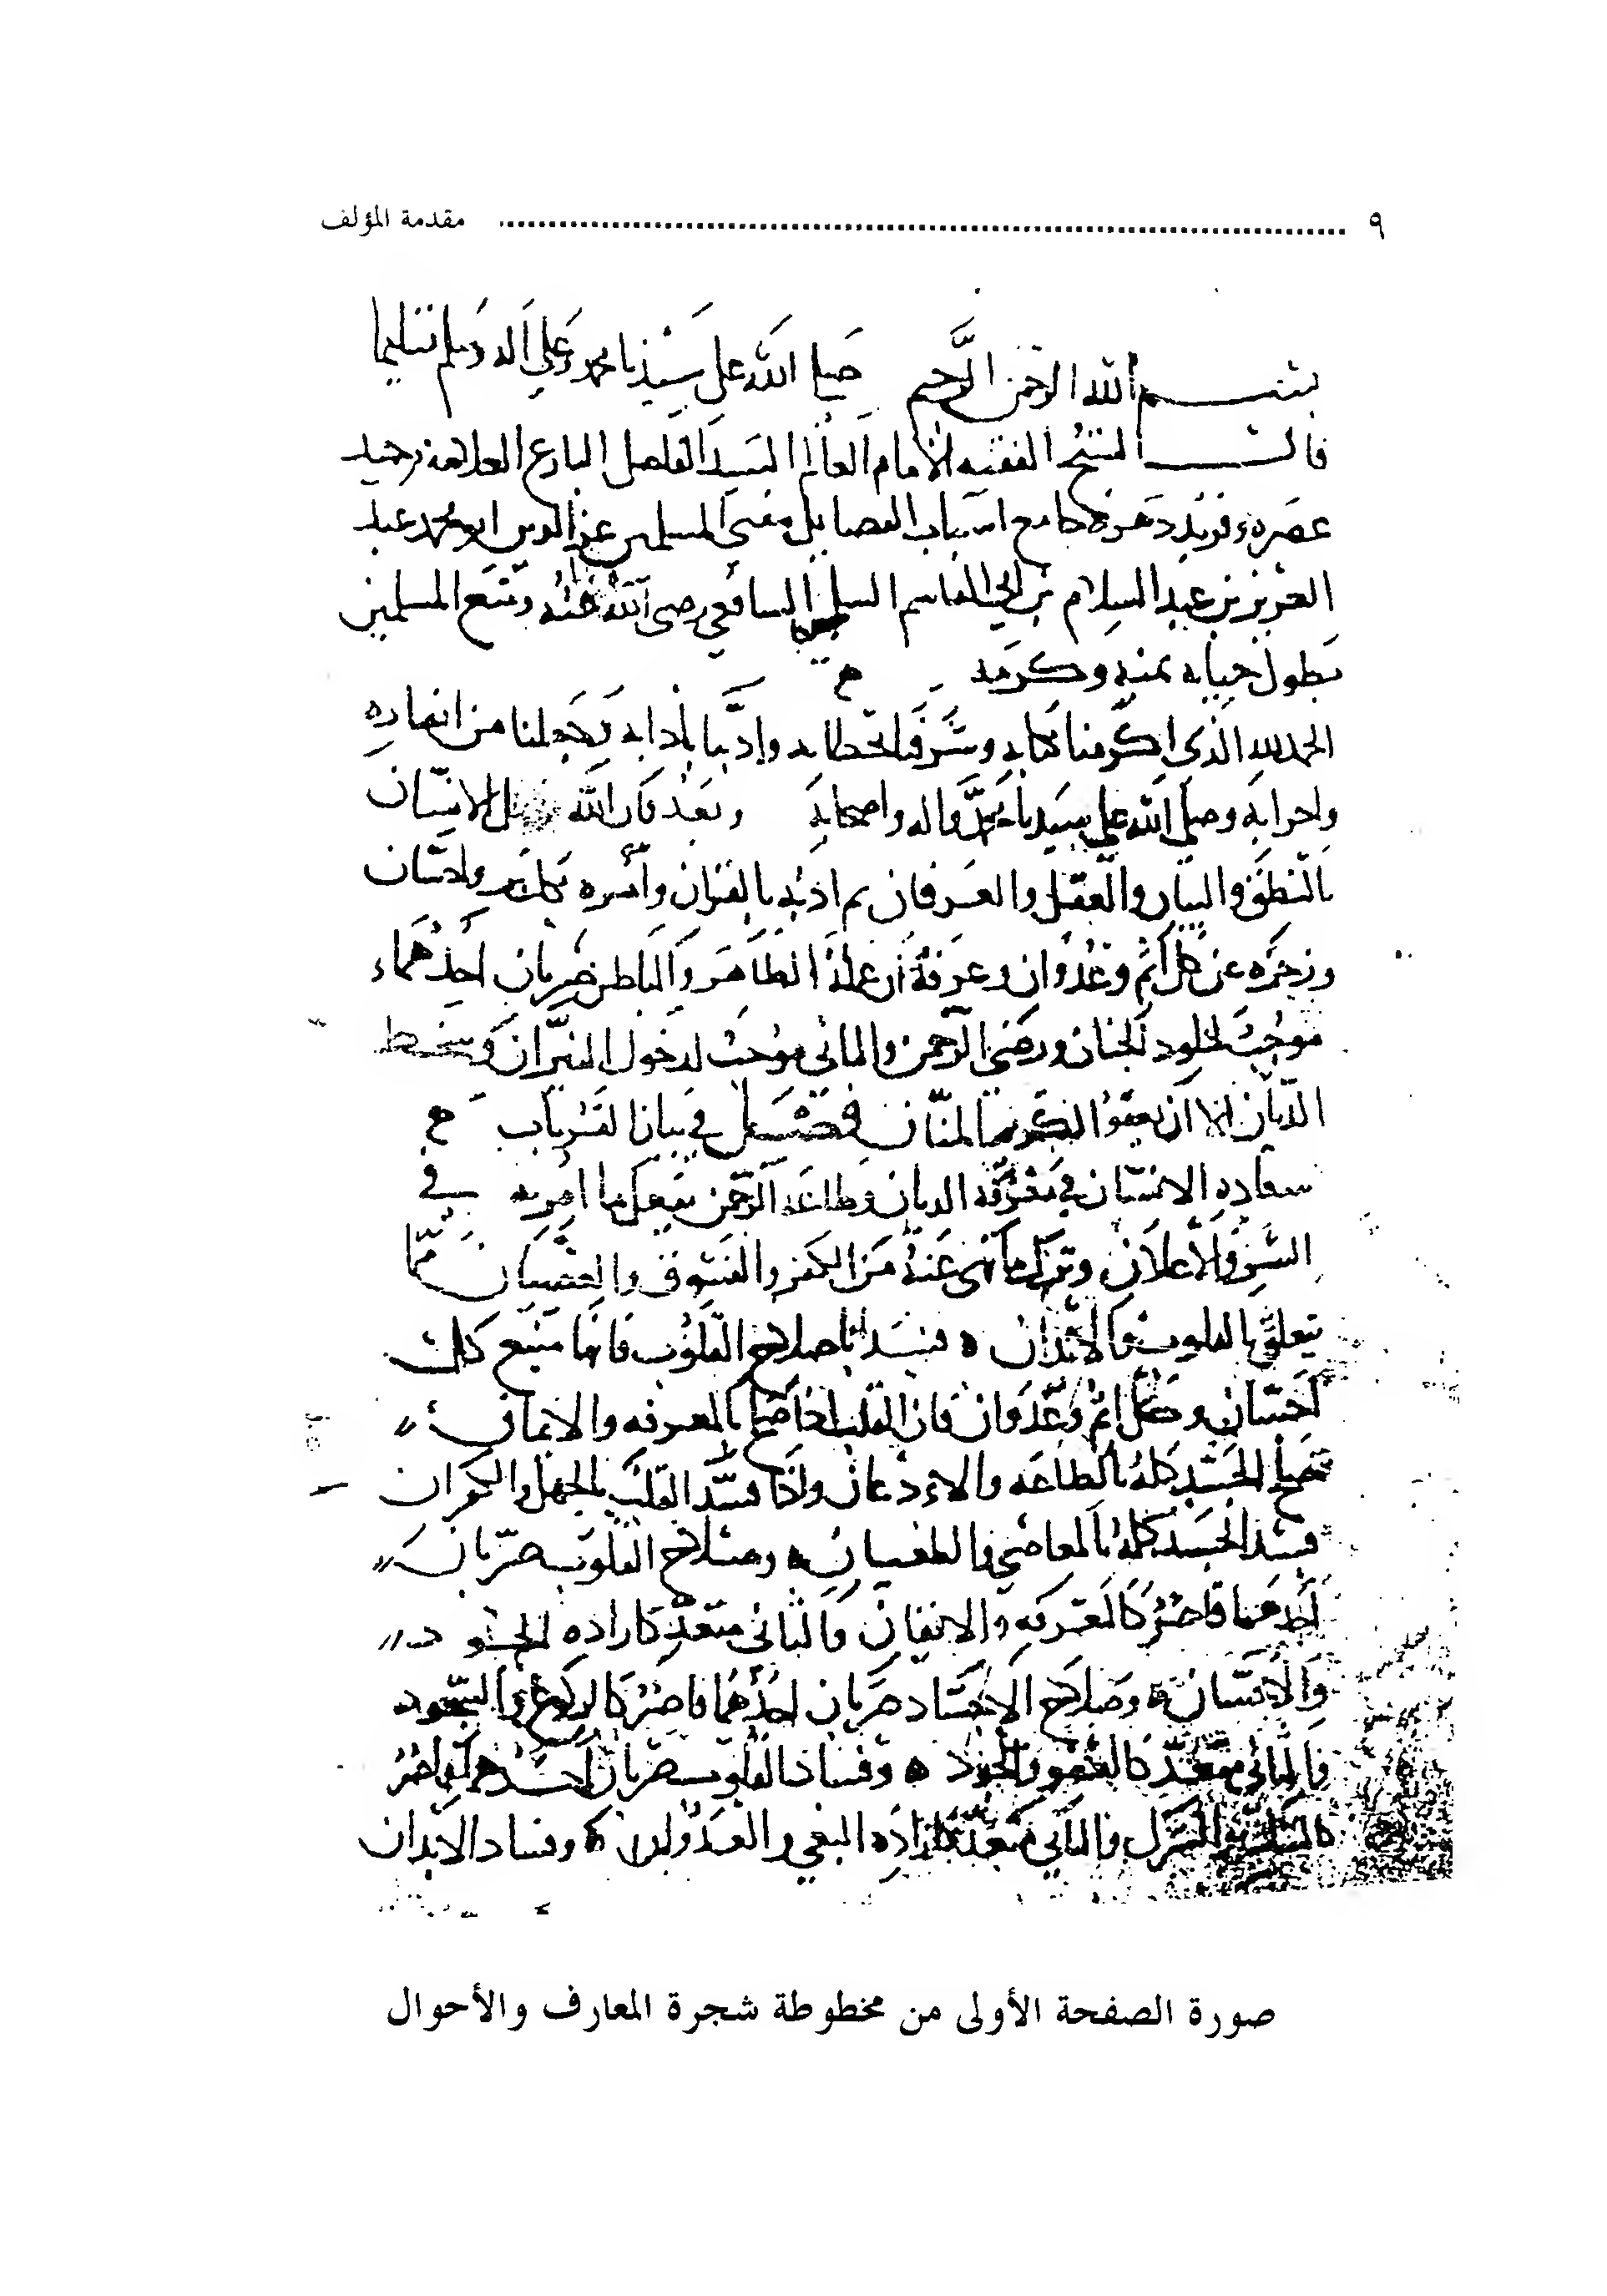 ٩ مقدمة المؤلف
بسم الله الرحمن الرحيم صلى الله على سيدنا محمد وعلى اله وسلم تسليما
قال الشيخ الفقيه الامام العالم السيد الفاضل البارع العلامة وحيد
عصره وفريد دهره جامع اسباب الفضايل مفتى المسلمين عز الدين ابو محمد عبد
العزيز بن عبد السلام بن ابي القاسم السلمى الشافعي رضى الله عنه ومتع المسلمين
بطول حياته بمنه وكرمه
الحمد لله الذي اكرمنا بكتابه وشرفنا بخطابه وادبنا بادابه وجعلنا من انصاره
واحزابه وصلى الله على سيدنا محمد واله واصحابه وبعد فان الله الانسان
بالنطق والبيان والعقل والعرفان ثم ادبه بالقران وامره بكل بر واحسان
وزجره عن كل اثم وعدوان وعرفه ان عمله الظاهر والباطن ضربان احدهما
موجب لخلود الجنان ورضى الرحمن والثاني موجب لدخول النيران وسخط
الديان الا ان يعفو الكريم المنان فصل في بيان القربات
سعاده الانسان في معرفه الديان وطاعه الرحمن بفعل ما امر به في
السر والاعلان وترك ما نهى عنه من الكفر والفسوق والعصيان مما
يتعلق بالقلوب والابدان ه فنبدا باصلاح القلوب فانها منبع كل
احسان وكل اثم وعدوان فان القلب اذا صلح بالمعرفه والايمان
صلح الجسد كله بالطاعه والاذعان واذا فسد القلب بالجهل والكفران
فسد الجسد كله بالمعاصي والطغيان ه وصلاح القلوب ضربان
احدهما قاصر كالمعرفه والايمان والثاني متعد كاراده الجود
والاحسان ه وصلاح الاجساد ضربان احدهما قاصر كالركوع والسجود
والثاني متعد كالعفو والجود ه وفساد القلوب ضربان احدهما قاصر
والثاني متعد كاراده البغي والعدوان ه وفساد الابدان
صورة الصفحة الأولى من مخطوطة شجرة المعارف والأحوال